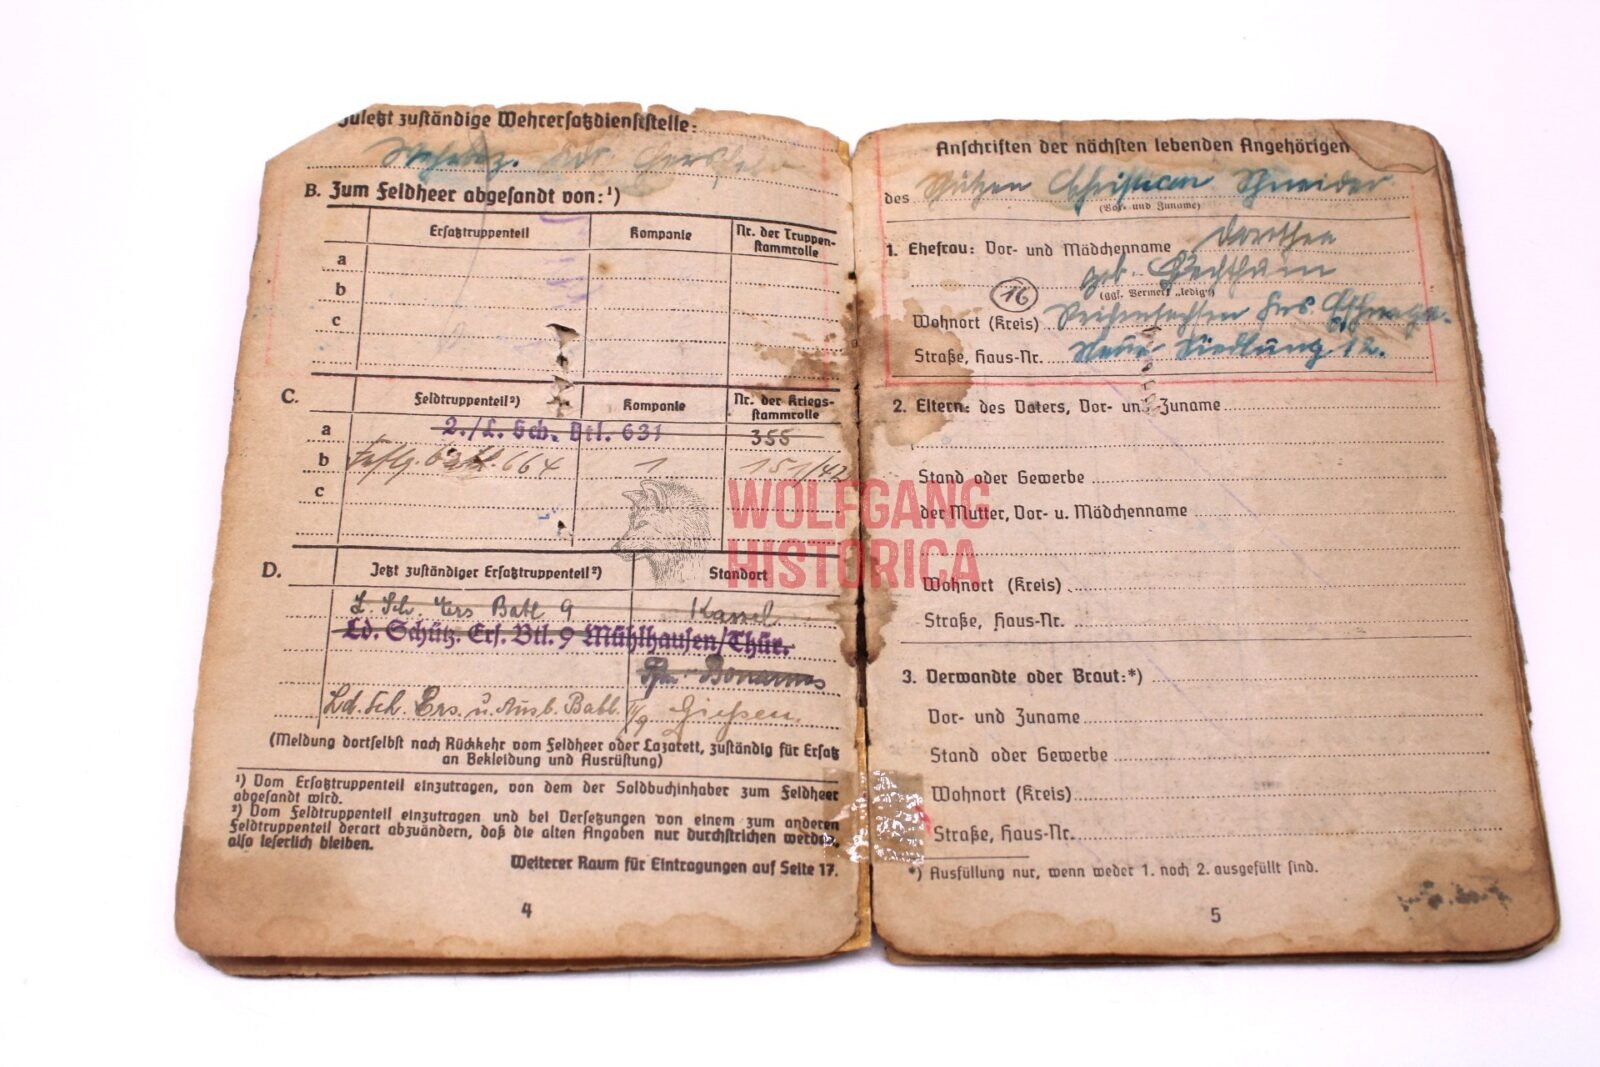 Zuletzt zuständige Wehrersatzdienststelle:
B. Zum Feldheer abgesandt von:¹)
Ersatztruppenteil Kompanie Nr. der Truppen-
stammrolle
a
b
c
C. Feldtruppenteil²) Kompanie Nr. der Kriegs-
stammrolle
a 2./L. Sch. Btl. 631 355
b 664 1 151/42
c
D. Jetzt zuständiger Ersatztruppenteil²) Standort
L. Sch. Ers Batl 9 Kassel
Ld. Schütz. Ers. Btl. 9 Mühlhausen/Thür.
Bonames
Ld. Sch. Ers. u. Ausb. Batl. II/9 Gießen.
(Meldung dortselbst nach Rückkehr vom Feldheer oder Lazarett, zuständig für Ersatz
an Bekleidung und Ausrüstung)
¹) Vom Ersatztruppenteil einzutragen, von dem der Soldbuchinhaber zum Feldheer
abgesandt wird.
²) Vom Feldtruppenteil einzutragen und bei Versetzungen von einem zum anderen
Feldtruppenteil derart abzuändern, daß die alten Angaben nur durchstrichen werden,
also leserlich bleiben.
Weiterer Raum für Eintragungen auf Seite 17.
4
Anschriften der nächsten lebenden Angehörigen
des Schützen Christian Schneider
(Vor- und Zuname)
1. Ehefrau: Vor- und Mädchenname Dorothea
geb.
(ggf. Vermerk „ledig“)
16
Wohnort (Kreis) Reichensachsen Krs. Eschwege.
Straße, Haus-Nr. Neue Siedlung 12.
2. Eltern: des Vaters, Vor- und Zuname
Stand oder Gewerbe
der Mutter, Vor- u. Mädchenname
Wohnort (Kreis)
Straße, Haus-Nr.
3. Verwandte oder Braut:*)
Vor- und Zuname
Stand oder Gewerbe
Wohnort (Kreis)
Straße, Haus-Nr.
*) Ausfüllung nur, wenn weder 1. noch 2. ausgefüllt sind.
5
WOLFGANG
HISTORICA